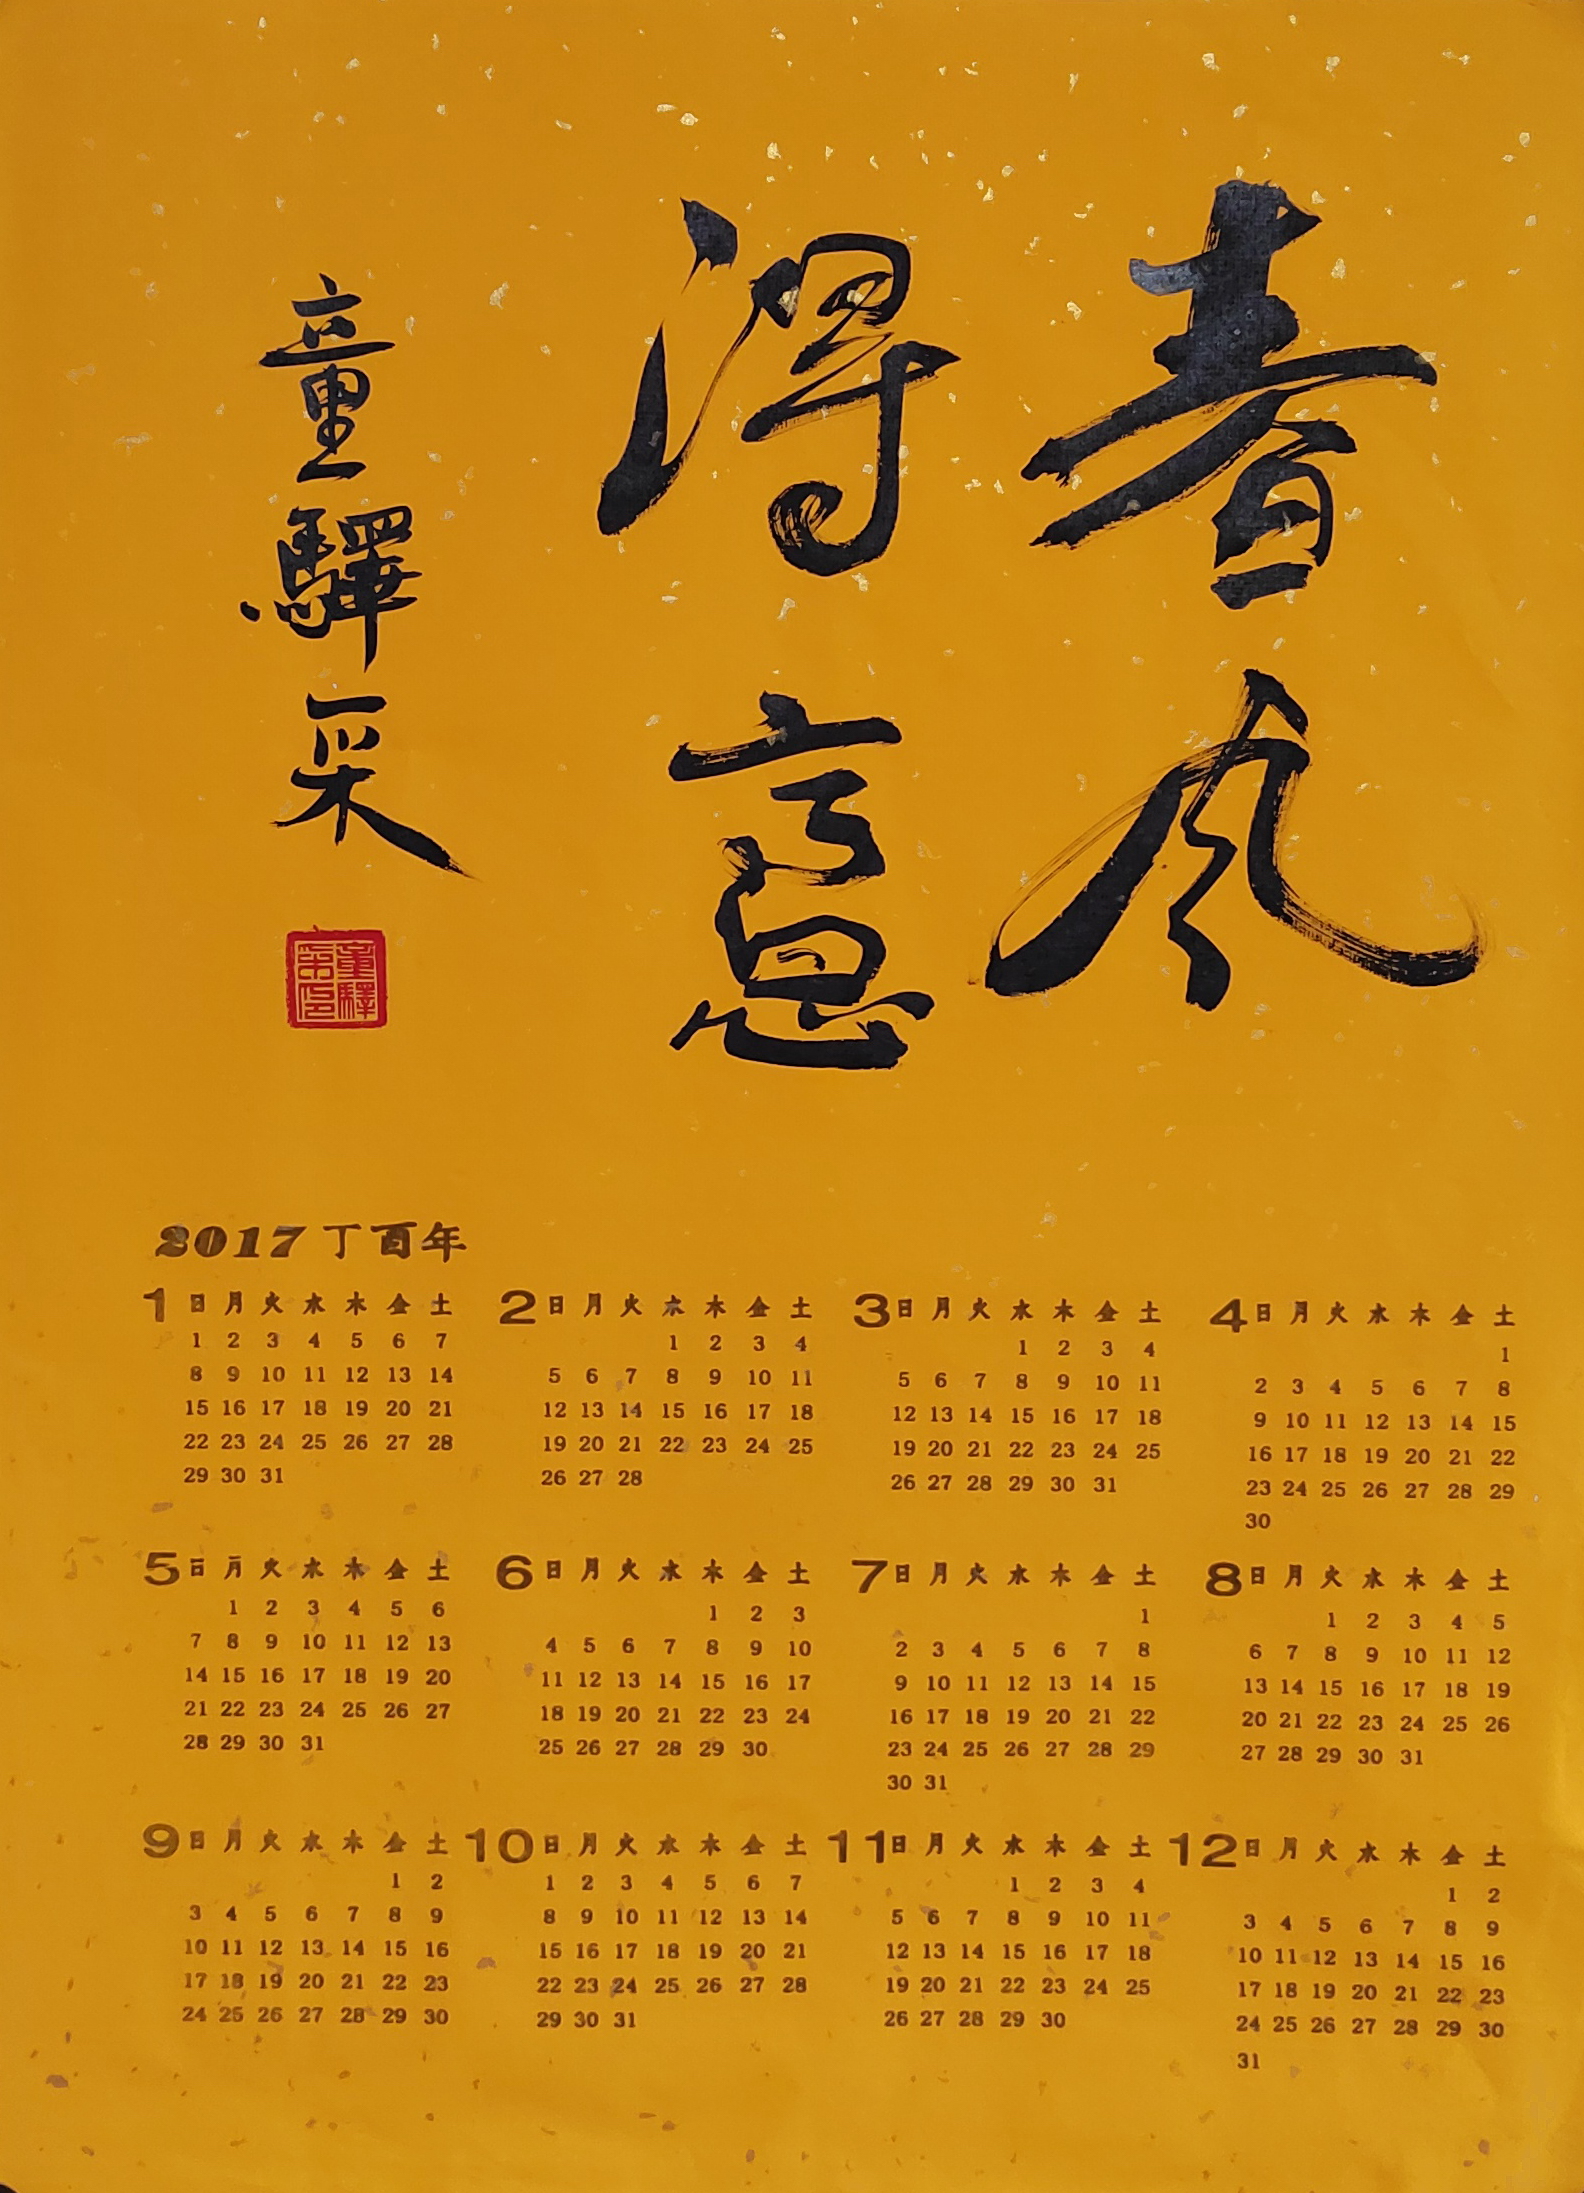 春風
得意
童驛采
童驛
采印
2017丁酉年
1 日 月 火 水 木 金 土
1 2 3 4 5 6 7
8 9 10 11 12 13 14
15 16 17 18 19 20 21
22 23 24 25 26 27 28
29 30 31
2 日 月 火 水 木 金 土
1 2 3 4
5 6 7 8 9 10 11
12 13 14 15 16 17 18
19 20 21 22 23 24 25
26 27 28
3 日 月 火 水 木 金 土
1 2 3 4
5 6 7 8 9 10 11
12 13 14 15 16 17 18
19 20 21 22 23 24 25
26 27 28 29 30 31
4 日 月 火 水 木 金 土
1
2 3 4 5 6 7 8
9 10 11 12 13 14 15
16 17 18 19 20 21 22
23 24 25 26 27 28 29
30
5 日 月 火 水 木 金 土
1 2 3 4 5 6
7 8 9 10 11 12 13
14 15 16 17 18 19 20
21 22 23 24 25 26 27
28 29 30 31
6 日 月 火 水 木 金 土
1 2 3
4 5 6 7 8 9 10
11 12 13 14 15 16 17
18 19 20 21 22 23 24
25 26 27 28 29 30
7 日 月 火 水 木 金 土
1
2 3 4 5 6 7 8
9 10 11 12 13 14 15
16 17 18 19 20 21 22
23 24 25 26 27 28 29
30 31
8 日 月 火 水 木 金 土
1 2 3 4 5
6 7 8 9 10 11 12
13 14 15 16 17 18 19
20 21 22 23 24 25 26
27 28 29 30 31
9 日 月 火 水 木 金 土
1 2
3 4 5 6 7 8 9
10 11 12 13 14 15 16
17 18 19 20 21 22 23
24 25 26 27 28 29 30
10 日 月 火 水 木 金 土
1 2 3 4 5 6 7
8 9 10 11 12 13 14
15 16 17 18 19 20 21
22 23 24 25 26 27 28
29 30 31
11 日 月 火 水 木 金 土
1 2 3 4
5 6 7 8 9 10 11
12 13 14 15 16 17 18
19 20 21 22 23 24 25
26 27 28 29 30
12 日 月 火 水 木 金 土
1 2
3 4 5 6 7 8 9
10 11 12 13 14 15 16
17 18 19 20 21 22 23
24 25 26 27 28 29 30
31